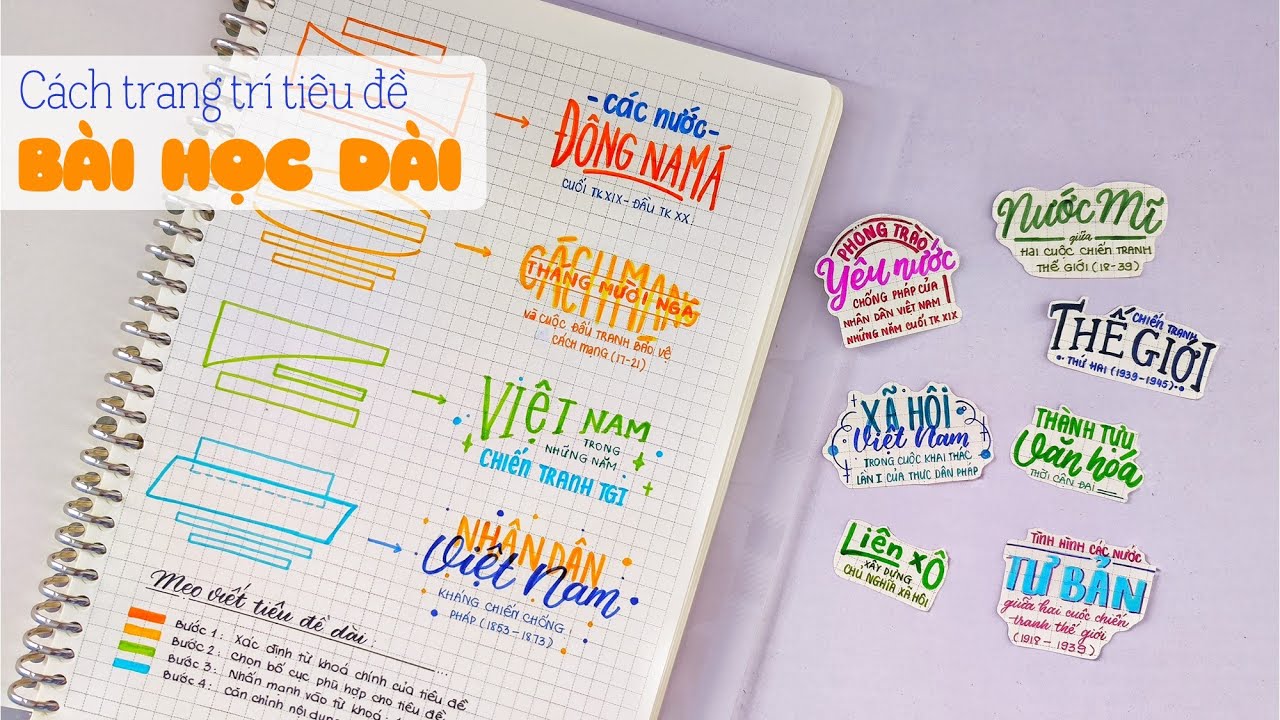 Cách trang trí tiêu đề
BÀI HỌC DÀI
- CÁC NƯỚC -
ĐÔNG NAM Á
CUỐI TK XIX - ĐẦU TK XX
CÁCH MẠNG
THÁNG MƯỜI NGA
VÀ CUỘC ĐẤU TRANH BẢO VỆ
CÁCH MẠNG (17-21)
VIỆT NAM
TRONG
NHỮNG NĂM
CHIẾN TRANH TGI
NHÂN DÂN
Việt Nam
KHÁNG CHIẾN CHỐNG
PHÁP (1853-1873)
Mẹo viết tiêu đề dài:
Bước 1: Xác định từ khoá chính của tiêu đề
Bước 2: Chọn bố cục phù hợp cho tiêu đề
Bước 3: Nhấn mạnh vào từ khoá
Bước 4: Căn chỉnh nội dung
PHONG TRÀO
Yêu nước
CHỐNG PHÁP CỦA
NHÂN DÂN VIỆT NAM
NHỮNG NĂM CUỐI TK XIX
Nước Mĩ
giữa
HAI CUỘC CHIẾN TRANH
THẾ GIỚI (18-39)
CHIẾN TRANH
THẾ GIỚI
THỨ HAI (1939-1945)
XÃ HỘI
Việt Nam
TRONG CUỘC KHAI THÁC
LẦN I CỦA THỰC DÂN PHÁP
THÀNH TỰU
Văn hóa
THỜI CẬN ĐẠI
Liên xÔ
XÂY DỰNG
CHỦ NGHĨA XÃ HỘI
TÌNH HÌNH CÁC NƯỚC
TƯ BẢN
giữa hai cuộc chiến
tranh thế giới
(1918-1939)